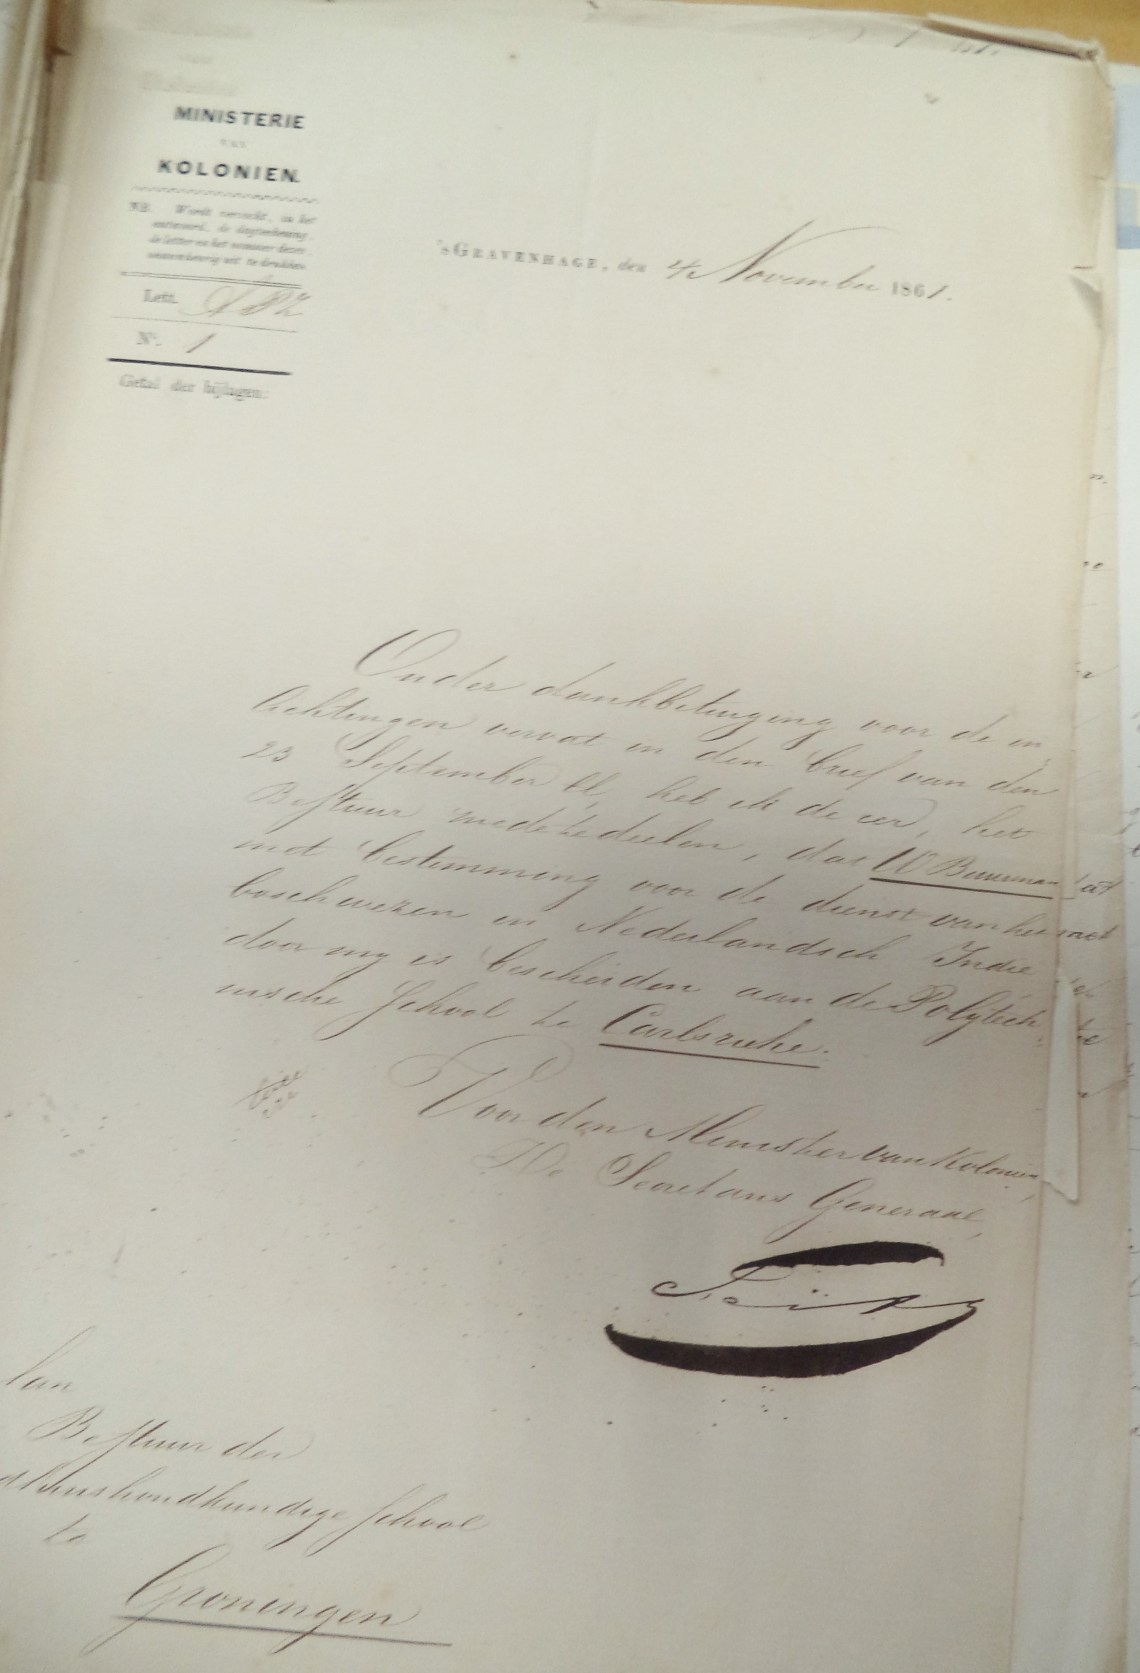 MINISTERIE
VAN
KOLONIEN.
NB. Wordt verzocht, in het
antwoord, de dagteekening,
de letter en het nommer dezer
naauwkeurig uit te drukken
's GRAVENHAGE, den 4 November 1861.
Lett.
N°. 1
Getal der bijlagen:
Onder dankbetuiging voor de in
lichtingen vervat in den brief van den
23 September ll, heb ik de eer, het
Bestuur mede te deelen, dat W Buurman
met bestemming voor de dienst van het
boschwezen in Nederlandsch Indie
door mij is bescheiden aan de Polytech
nische School te Carlsruhe.
Voor den Minister van Kolonien,
De Secretaris Generaal,
Aan
Bestuur der
Landhuishoudkundige School
te
Groningen